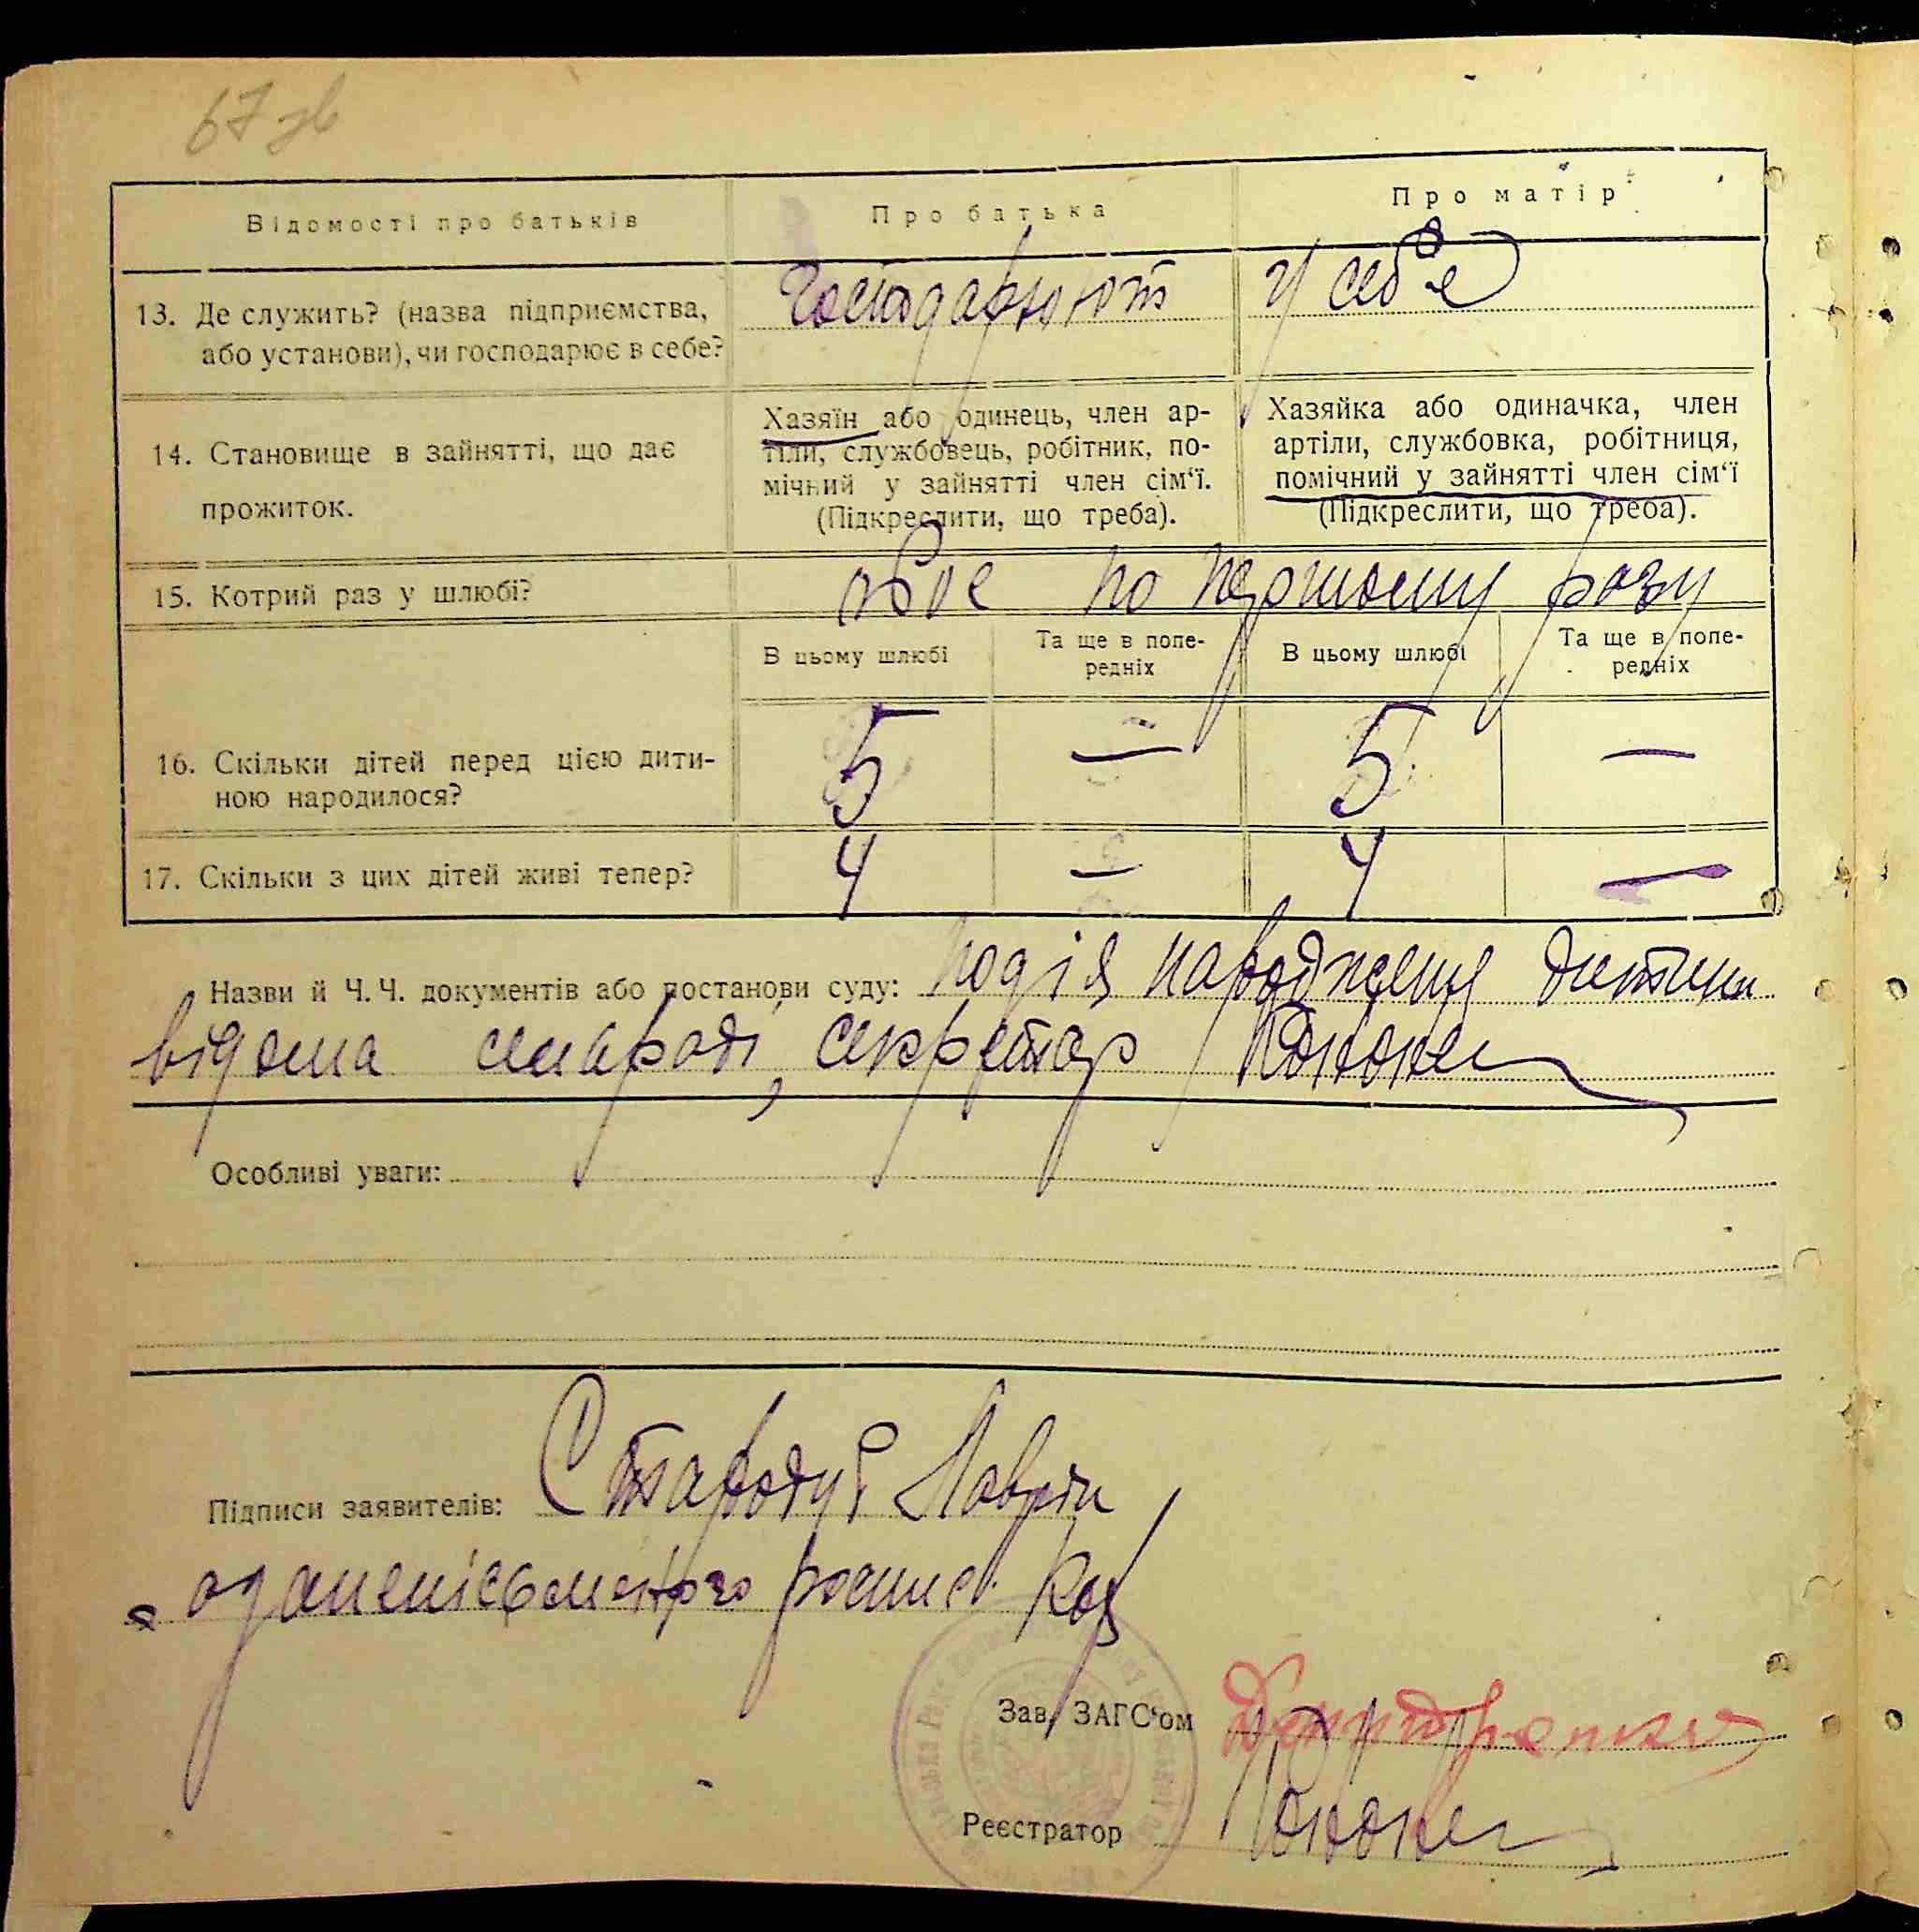 67 зв
Відомості про батьків
Про батька
Про матір
13. Де служить? (назва підприємства,
або установи), чи господарює в себе?
Господарюють у себе
14. Становище в зайнятті, що дає
прожиток.
Хазяїн або одинець, член ар-
тіли, службовець, робітник, по-
мічний у зайнятті член сім‘ї.
(Підкреслити, що треба).
Хазяйка або одиначка, член
артіли, службовка, робітниця,
помічний у зайнятті член сім‘ї
(Підкреслити, що треба).
15. Котрий раз у шлюбі?
обоє по першому разу
В цьому шлюбі
Та ще в попе-
редніх
В цьому шлюбі
Та ще в попе-
редніх
16. Скільки дітей перед цією дити-
ною народилося?
5 — 5 —
17. Скільки з цих дітей живі тепер?
4 — 4 —
Назви й Ч. Ч. документів або постанови суду: подія народження дитини
відома сільраді, секретар
Особливі уваги:
Підписи заявителів: Стародуб Лаврін
Зав. ЗАГС‘ом
Реєстратор